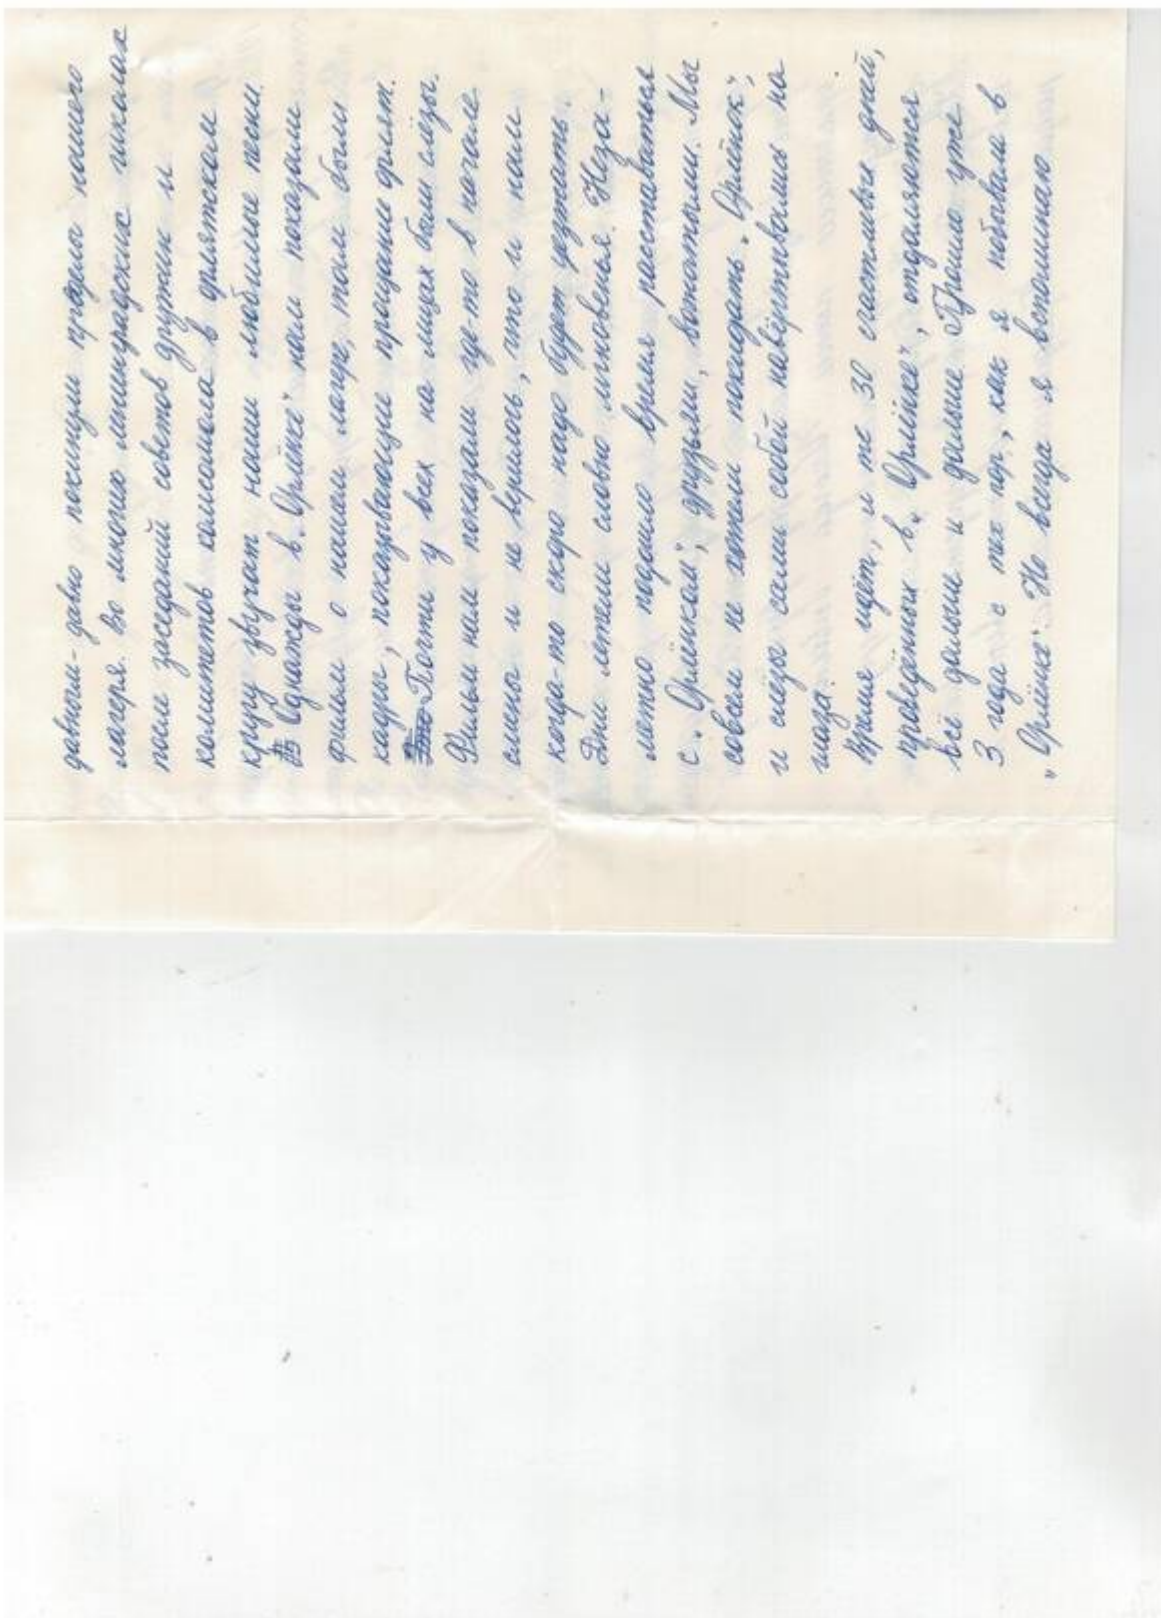 давным-давно покинули пределы нашего
лагеря. Во многих ленинградских школах
после заседаний советов дружин и
комитетов комсомола в орлятском
кругу звучат наши любимые песни.
Однажды в „Орлёнке" нам показали
фильм о нашем лагере, там были
кадры, показывающие прощание орлят.
Почти у всех на лицах были слёзы.
Фильм нам показали где-то в начале
смены и не верилось, что и нам
когда-то скоро надо будет уезжать.
Дни летели словно мгновенья. Неза-
метно подошло время расставаться
с „Орлёнком", друзьями, вожатыми. Мы
совсем не хотели покидать „Орлёнок",
и слёзы сами собой навёртывались на
глаза.
Время идёт, и те 30 счастливых дней,
проведённых в „Орлёнке", отдаляются
всё дальше и дальше. Прошло уже
3 года с тех пор, как я побывала в
„Орлёнке". Но всегда я вспоминаю